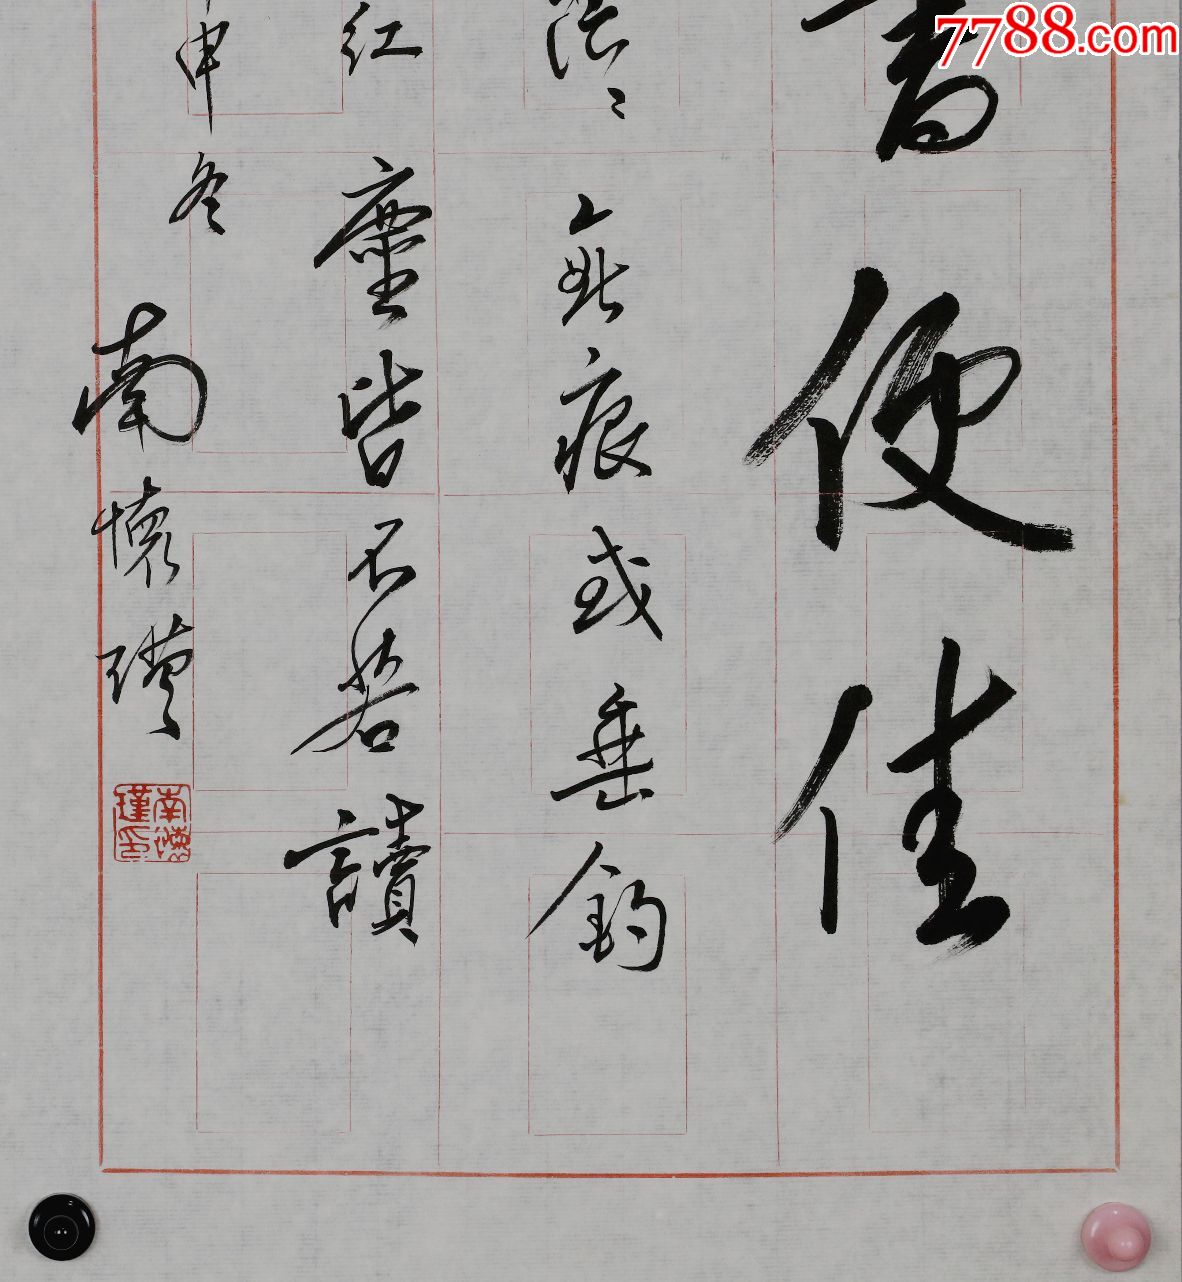 7788.com
書便佳
痕或垂釣
紅塵皆不若讀
申冬 南懷瑾
南懷瑾印